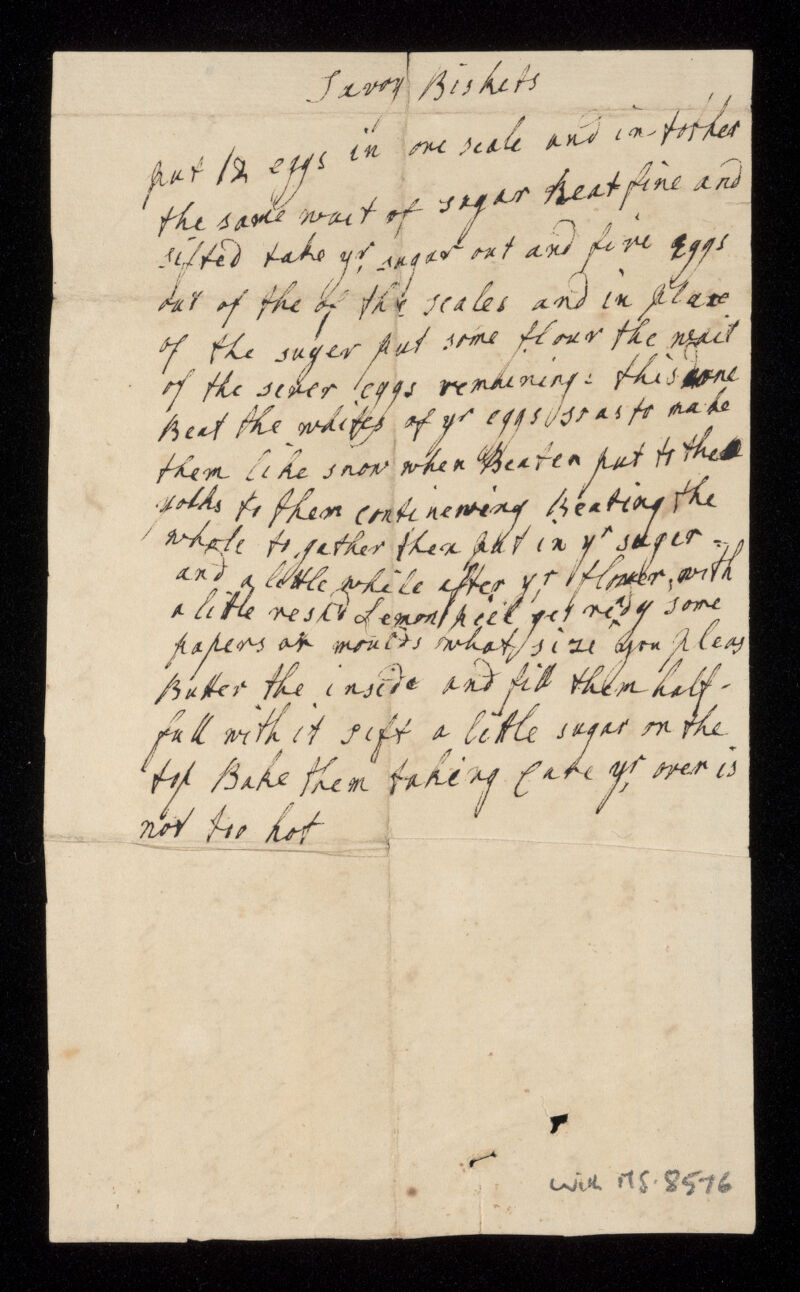 Savoy Biskets
put 12 eggs in one scale and in tother
the same wait of sugar Beat fine and
sifted take yr, sugar out and five eggs
out of the of the scales and in place
of the suger put some flour the wait
of the sever eggs remaining: this done
Beat the whites of yr eggs so as to make
them like snow when Beaten put to the
yolks to them continewing Beating the
whole to gather then put in yr suger =
and a little while after yr flower, with
a little resp'd Lemon peel get redy some
papers or moulds what size you pleas
Butter the inside and fill them half-
full with it sift a little sugar on the
top Bake them taking Care yr, oven is
not too hot
with MS. 8576